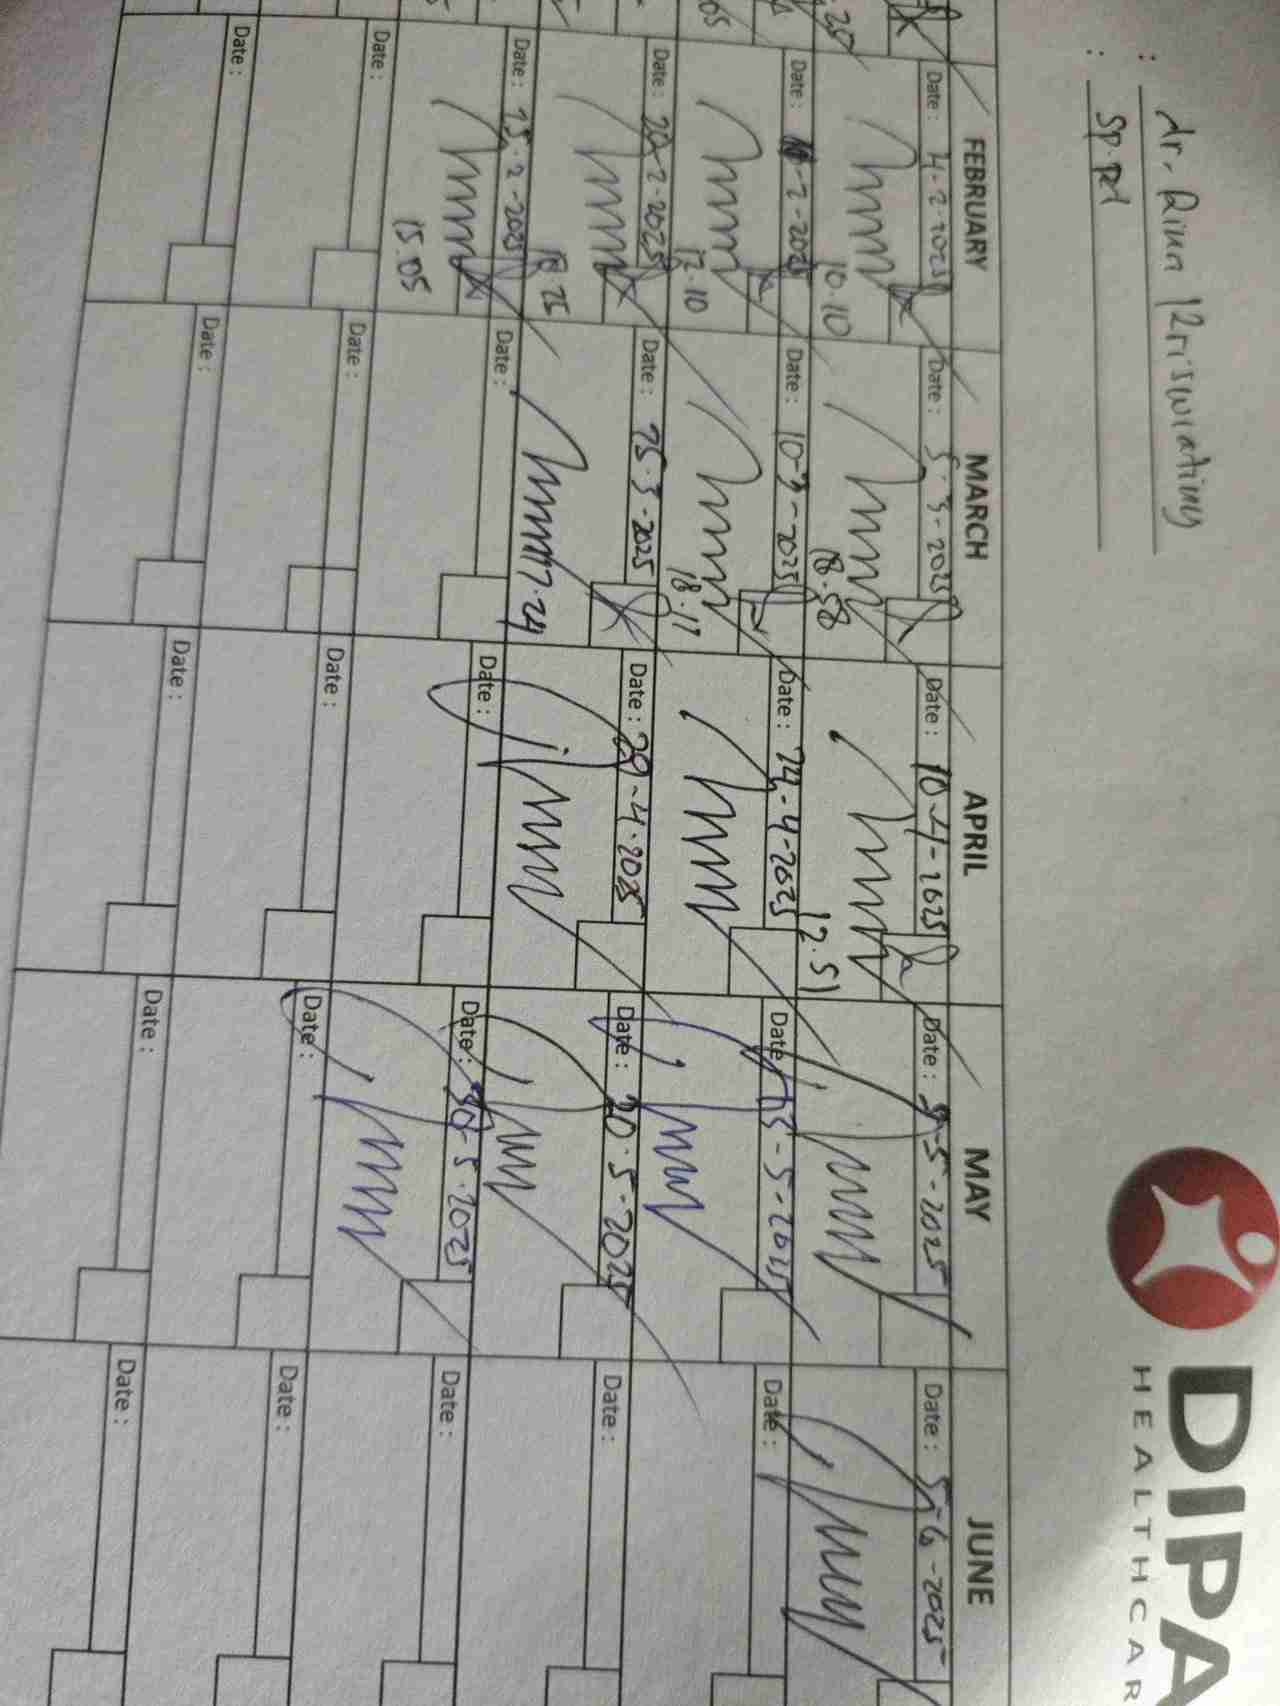 : dr. Rina Kriswiatiny
: Sp.Pd
DIPA
HEALTHCAR
FEBRUARY MARCH APRIL MAY JUNE
Date: 4-2-2025 Date: 5-3-2025 Date: 10-4-2025 Date: 5-2025 Date: 5-6-2025
10.10 18.58 12.51
Date: -2-2025 Date: 10-3-2025 Date: 24-4-2025 Date 13-5-2025 Date:
12.10 18.17
Date: 20-2-2025 Date: 25-3-2025 Date: 29-4-2025 Date: 20-5-2025 Date:
18.25 17.24
Date: 25-2-2025 Date: Date: Date: 30-5-2025 Date:
15.05
Date: Date: Date: Date: Date:
Date: Date: Date: Date: Date: